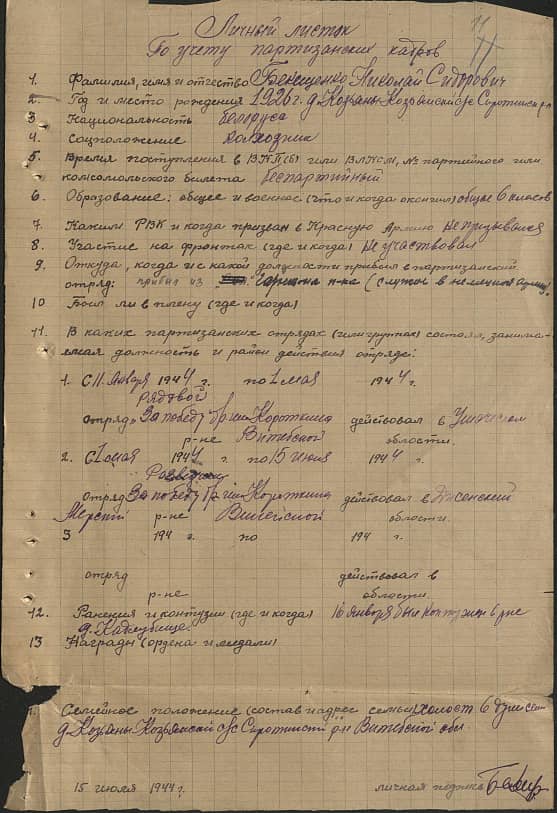 Личный листок
По учету партизанских кадров
1. Фамилия, имя и отчество Николай Сидорович
2. Год и место рождения 1926 г. д. Козьяны Козьянский с/с Сиротинск р-н
3 Национальность белорус
4. Соцположение колхозник
5. Время поступления в ВКП(б) или ВЛКСМ, № партийного или
комсомольского билета беспартийный
6. Образование: общее и военное (что и когда окончил) общее 6 классов
7 Каким РВК и когда призван в Красную Армию не призывался
8. Участие на фронтах (где и когда) не участвовал
9. Откуда, когда и с какой должности прибыл в партизанский
отряд: прибыл из р-на (служил в немецкой армии).
10 Был ли в плену (где и когда)
11. В каких партизанских отрядах (или группах) состоял, занима-
емая должность и район действия отряда:
1. С 11 января 1944 г. по 1 мая 1944 г.
Рядовой
отряд За победу бр им Короткина действовал в Ушачском
р-не Витебской области.
2. С 1 мая 1944 г. по 15 июня 1944 г.
отряд За победу бр им Короткина действовал в
р-не Вилейской области.
3 194 г. по 194 г.
отряд действовал в
р-не области.
12. Ранения и контузии (где и когда) 16 января был контужен в дне
д.
13 Награды (ордена и медали)
Семейное положение (состав и адрес семьи) холост 6 душ сем
д. Козьяны Козьянский с/с Сиротинск р-н Витебской обл.
15 июля 1944 г. личная подпись